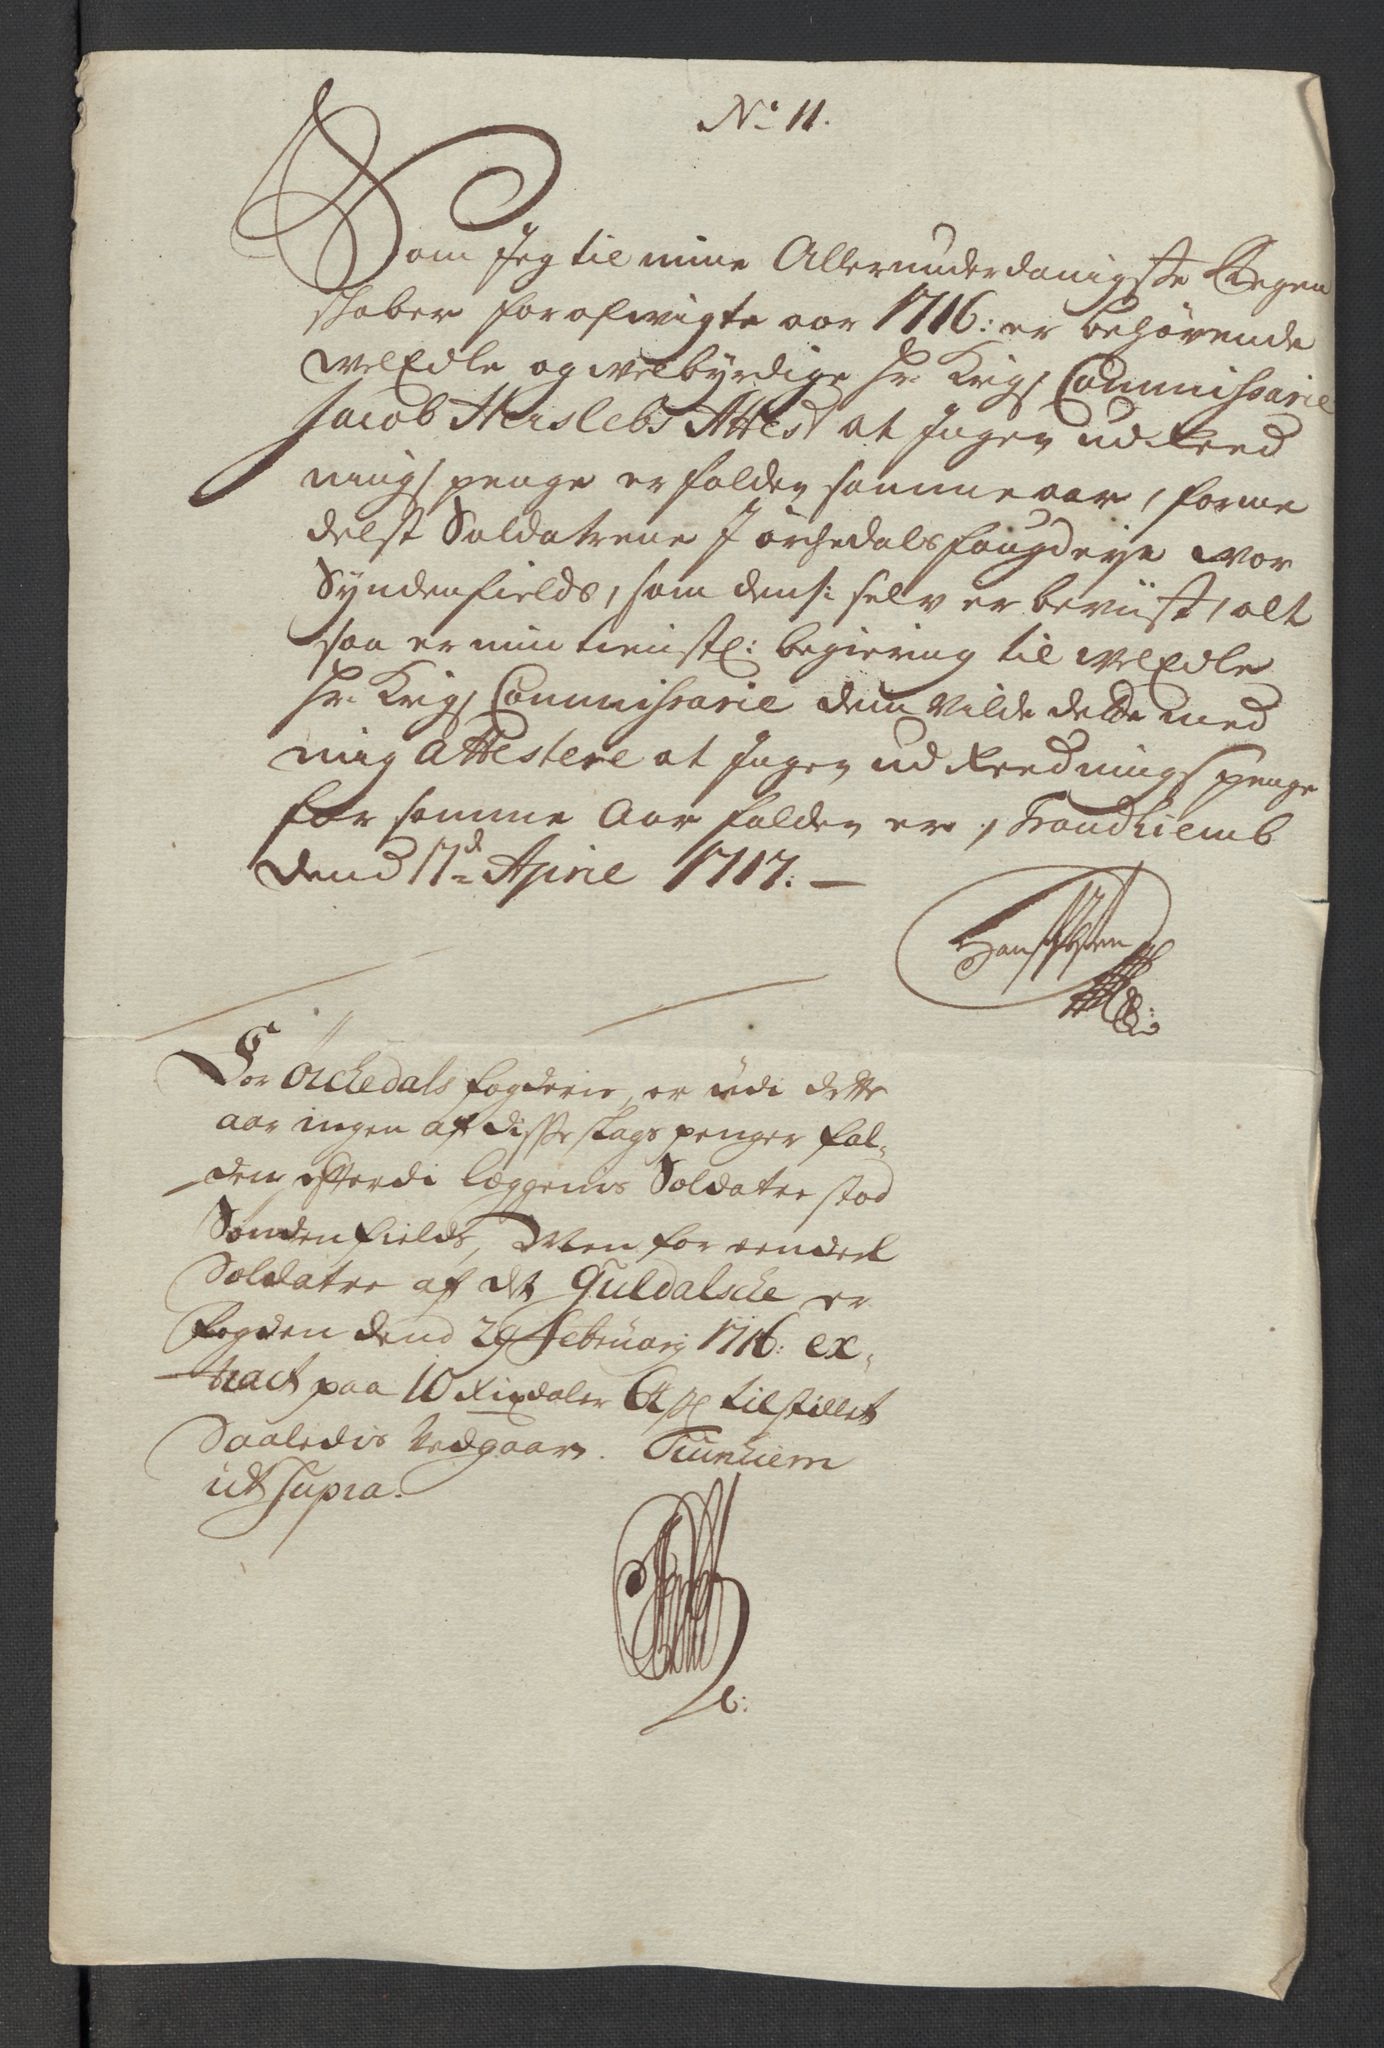 No 11.
Som Jeg til mine Allerunderdanigste Regen
skaber for afvigte aar 1716: er behövende
velEdle og velbyrdige Hr. Krigs Commissarie
Jacob Herslebs Attest at Ingen udReed
nings penge er falden samme aar, forme
delst Soldaterne J örchedals fougderje var
Syndenfields, som dens: selv er beviist, alt
saa er min tienstl: begiering til velEdle
Hr. Krigs Commissarie dem Vilde dette med
mig Attestere at Ingen udReednings penge
for samme Aar falden er, Trondhiemb
dend 17d Aprie 1717. —
For Örchedals fogderie, er udi dette
aar ingen af disse slags penger fal-
den efterdi læggenis Soldatre stod
Søndenfields, Men for eendeel
Soldatre af det Guldalsche er
fogden dend 29 Februarj 1716: ex-
tract paa 10 Rixdaler 64 sl tilstillet
Saaledis Vedgaar. Trunhiem
ut supra.